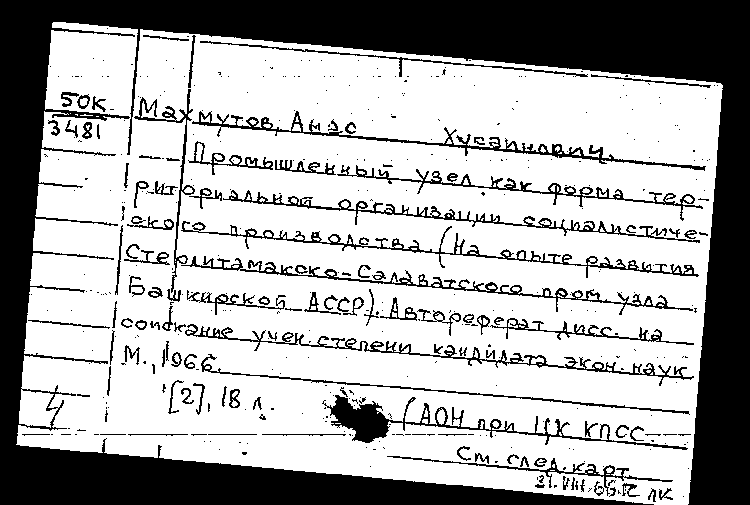 50К
3481
Махмутов, Анас Хусаинович.
Промышленный узел как форма тер-
риториальной организации социалистиче-
ского производства. (На опыте развития
Стерлитамакско-Салаватского пром. узла
Башкирской АССР). Автореферат дисс. на
соискание учен. степени кандидата экон. наук
М., 1966.
[2], 18 л.
(АОН при ЦК КПСС.
См. след. карт.
31.VIII.66г. ЛК